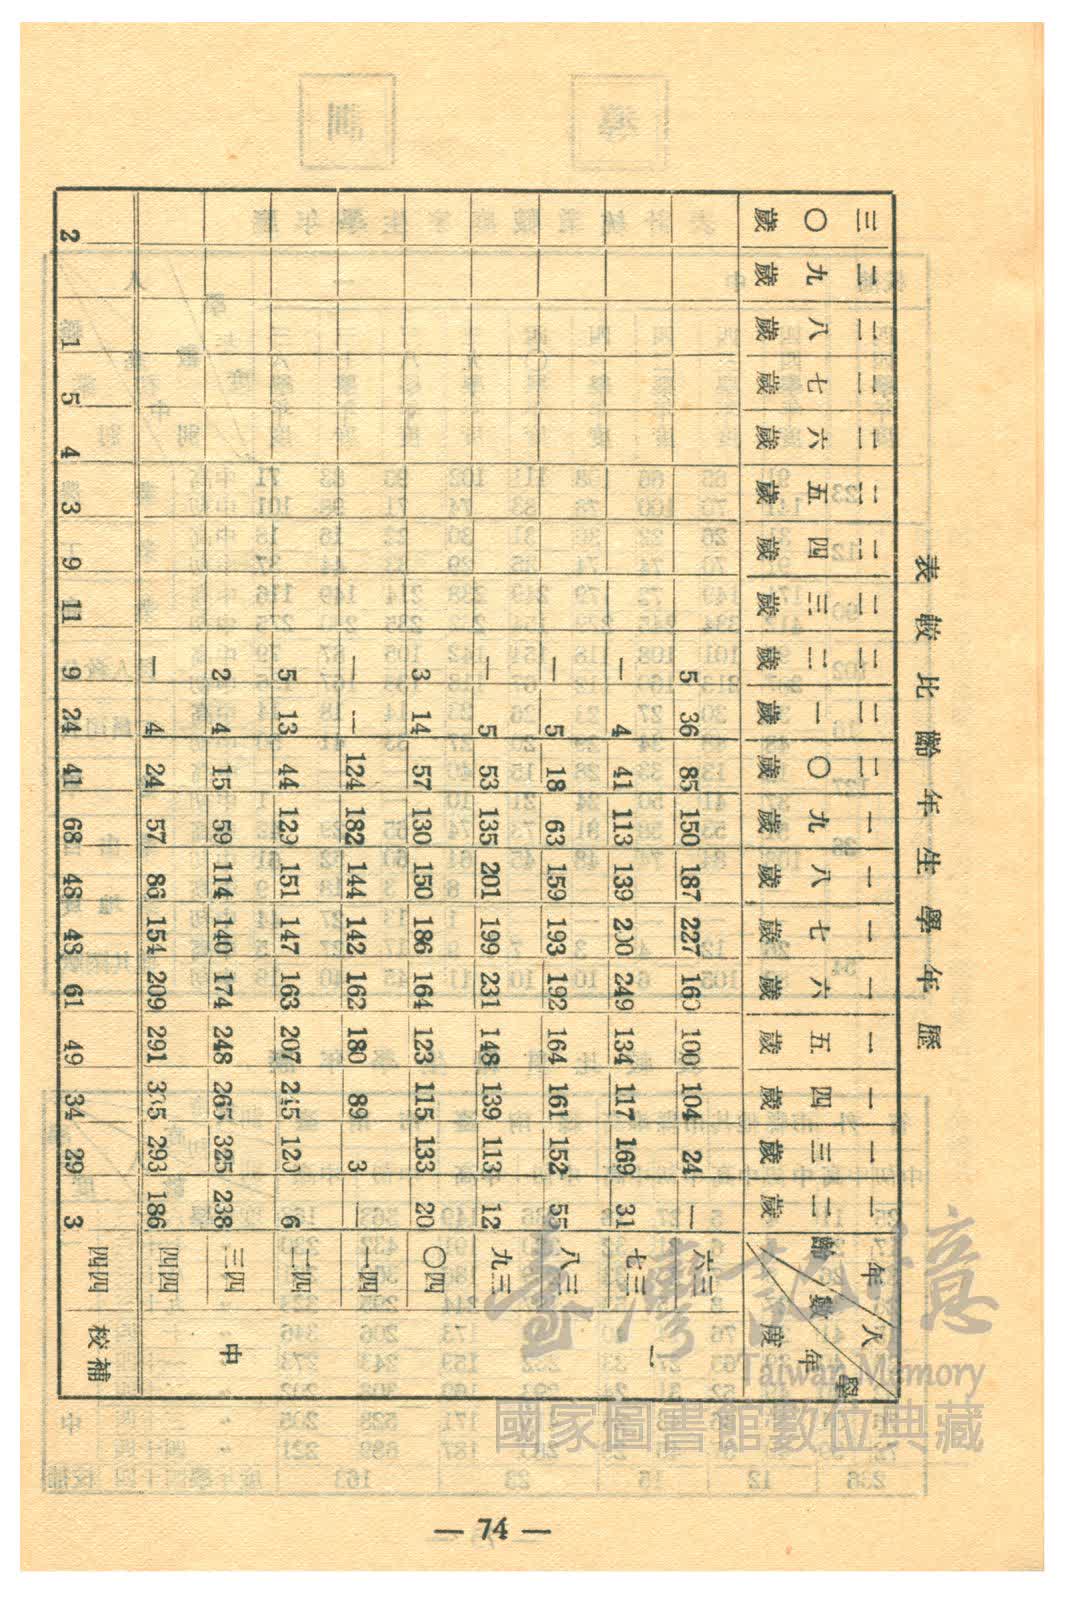 歷年學生年齡比較表
人數 年齡 學年度
一二歲 一三歲 一四歲 一五歲 一六歲 一七歲 一八歲 一九歲 二〇歲 二一歲 二二歲 二三歲 二四歲 二五歲 二六歲 二七歲 二八歲 二九歲 三〇歲
一中
三六 — 24 104 100 160 227 187 150 85 36 5
三七 31 169 117 134 249 200 139 113 41 4 —
三八 55 152 161 164 192 193 159 63 18 5 —
三九 12 113 139 148 231 199 201 135 53 5 —
四〇 20 133 115 123 164 186 150 130 57 14 3
四一 — 3 89 180 162 142 144 182 124 — —
四二 6 120 245 207 163 147 151 129 44 13 5
四三 238 325 265 248 174 140 114 59 15 4 2
四四 186 293 335 291 209 154 86 57 24 4 —
補校 四四 3 29 34 49 61 43 48 68 41 24 9 11 9 3 4 5 1 2
— 74 —
臺灣記憶
Taiwan Memory
國家圖書館數位典藏